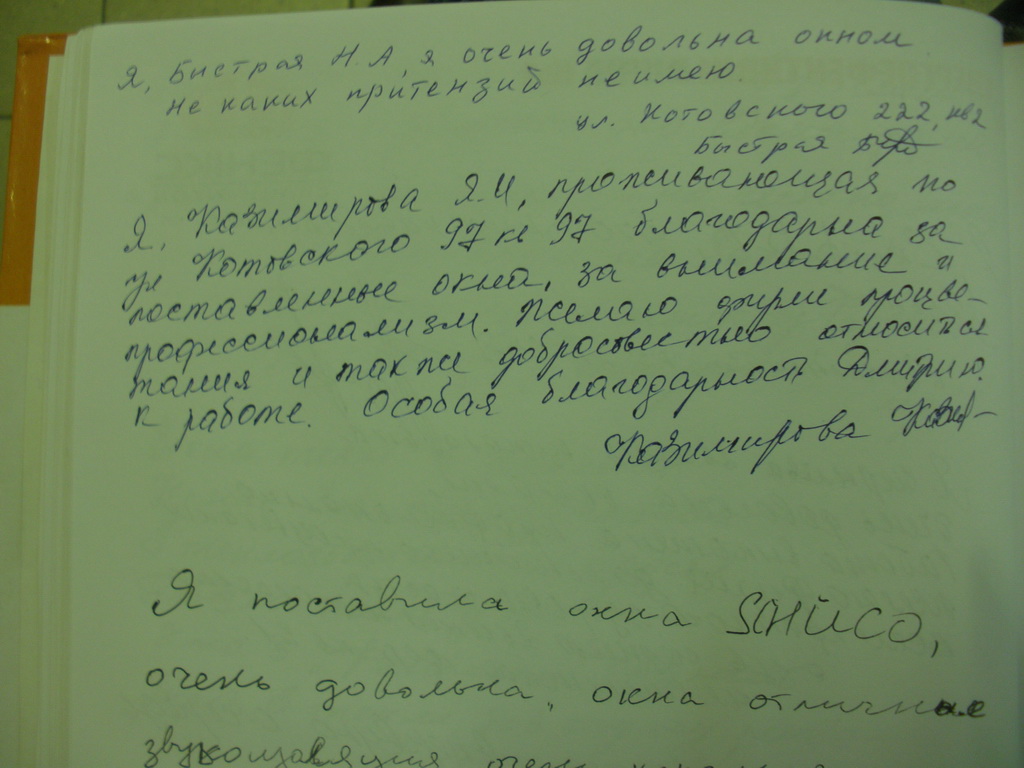 Я, Быстрая Н.А, я очень довольна окном
не каких притензий не имею.
ул. Котовского 222, кв2
Быстрая
Я, Казимирова Я.И, проживающая по
ул Котовского 97 кв 97 благодарна за
поставленные окна, за внимание и
профессионализм. Желаю фирме процве-
тания и также добросовестно относится
к работе. Особая благодарность Дмитрию.
Казимирова
Я поставила окна SCHÜCO,
очень довольна, окна отличные
очень